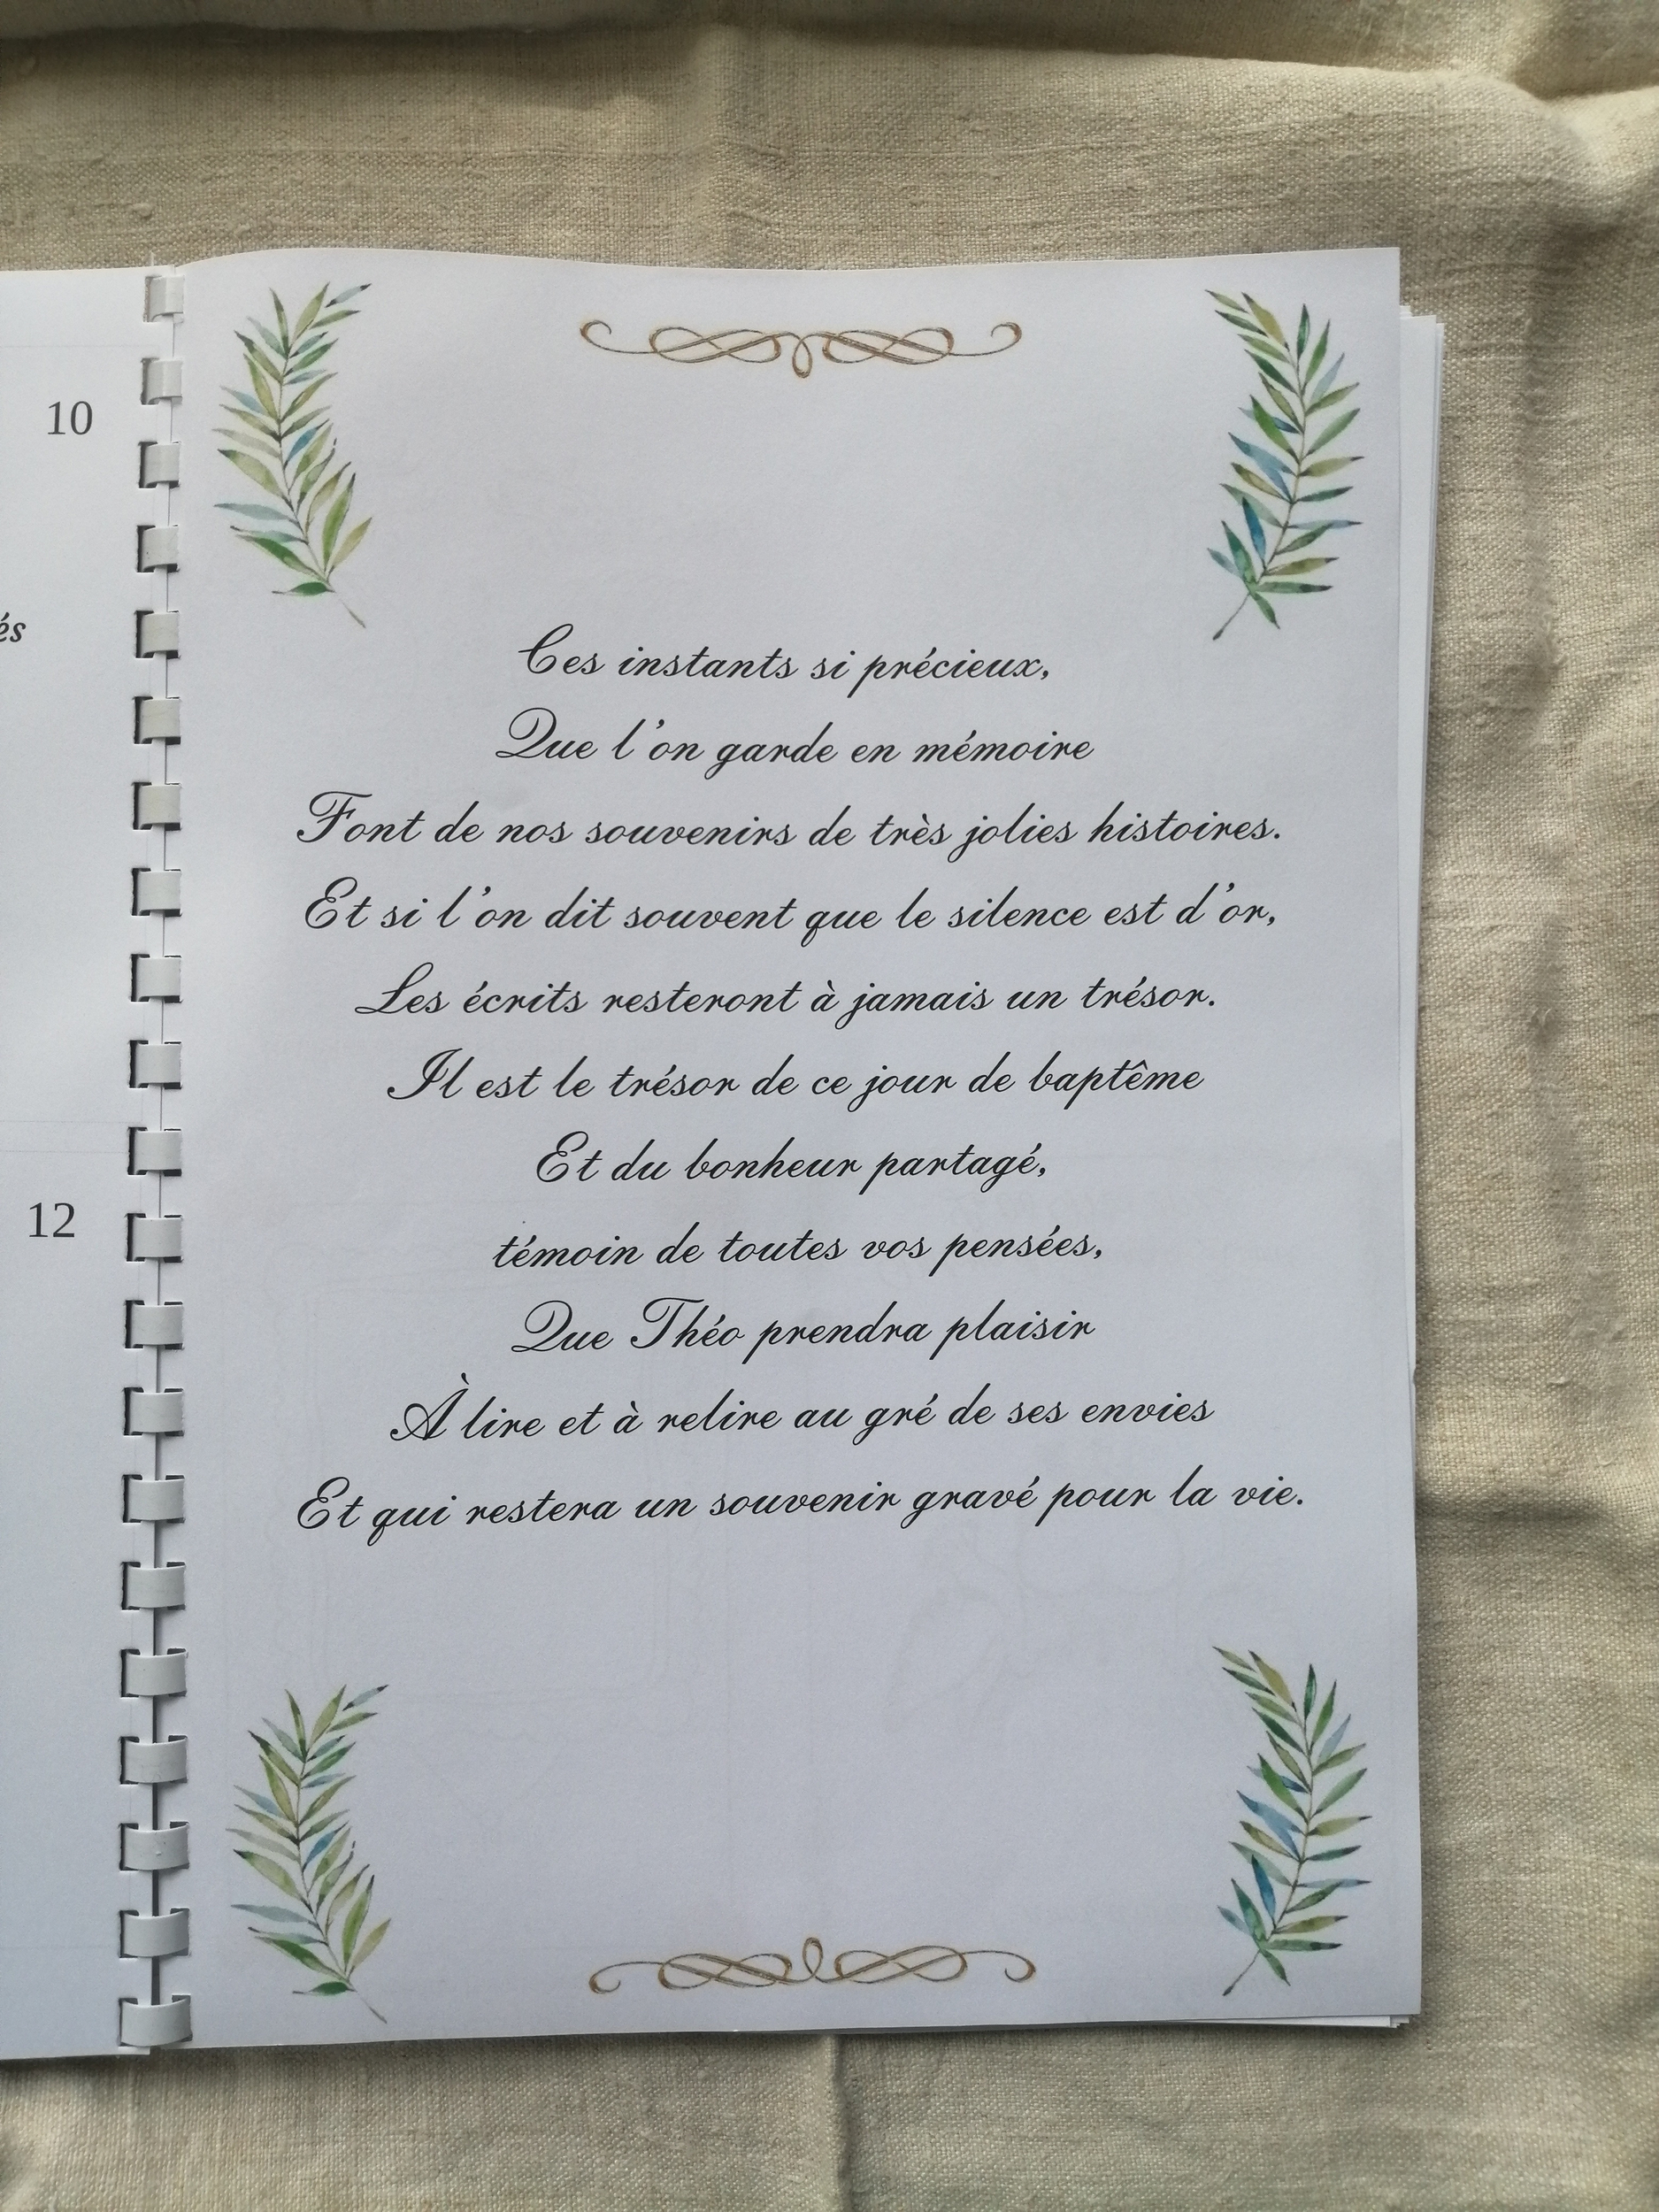 10
és
12
Ces instants si précieux,
Que l'on garde en mémoire
Font de nos souvenirs de très jolies histoires.
Et si l'on dit souvent que le silence est d'or,
Les écrits resteront à jamais un trésor.
Il est le trésor de ce jour de baptême
Et du bonheur partagé,
témoin de toutes vos pensées,
Que Théo prendra plaisir
À lire et à relire au gré de ses envies
Et qui restera un souvenir gravé pour la vie.